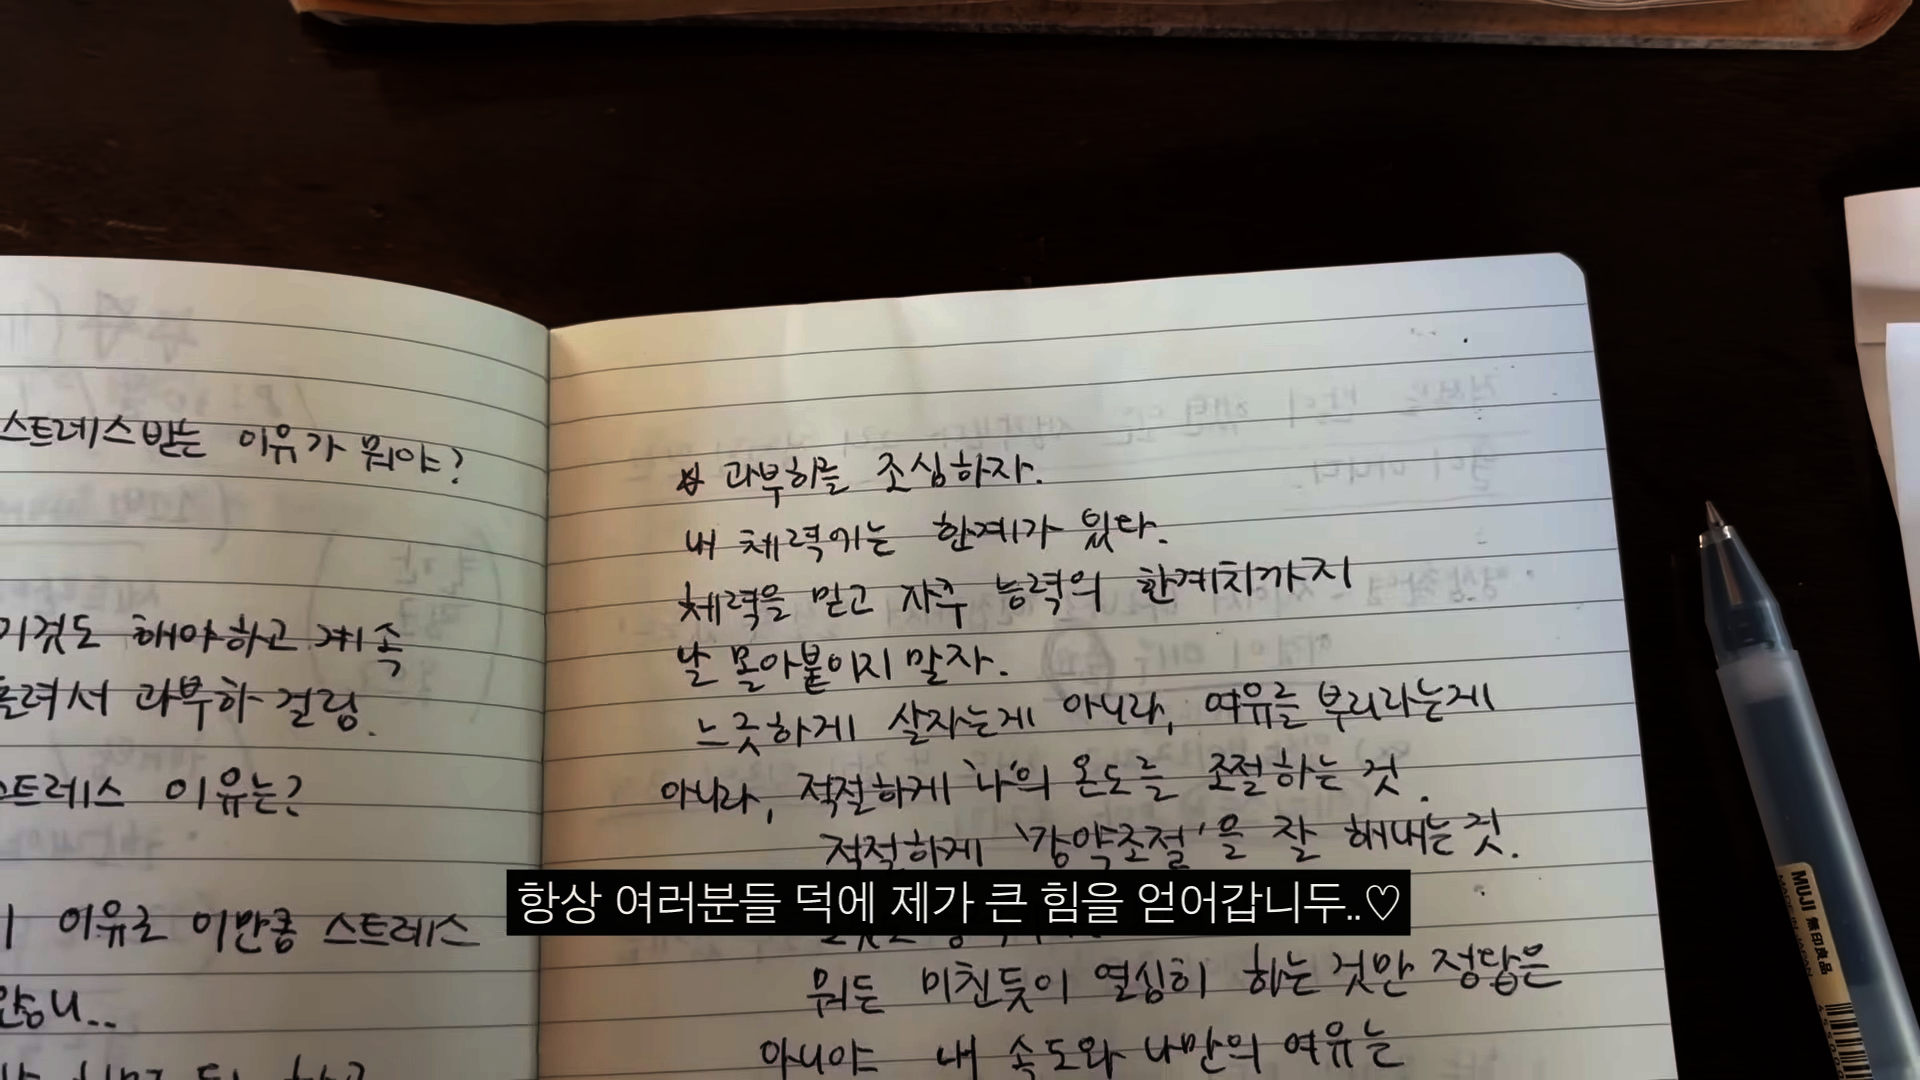 스트레스받는 이유가 뭐야?
이것도 해야하고 계속
돌려서 과부하 걸림.
스트레스 이유는?
이유로 이만큼 스트레스
☆ 과부하를 조심하자.
내 체력에는 한계가 있다.
체력을 믿고 자주 능력의 한계치까지
날 몰아붙이지 말자.
느긋하게 살자는게 아니라, 여유를 부리라는게
아니라, 적절하게 '나'의 온도를 조절하는 것.
적절하게 '강약조절'을 잘 해내는것.
뭐든 미친듯이 열심히 하는 것만 정답은
아니야 내 속도와 나만의 여유는
항상 여러분들 덕에 제가 큰 힘을 얻어갑니두..♡
MUJI 無印良品